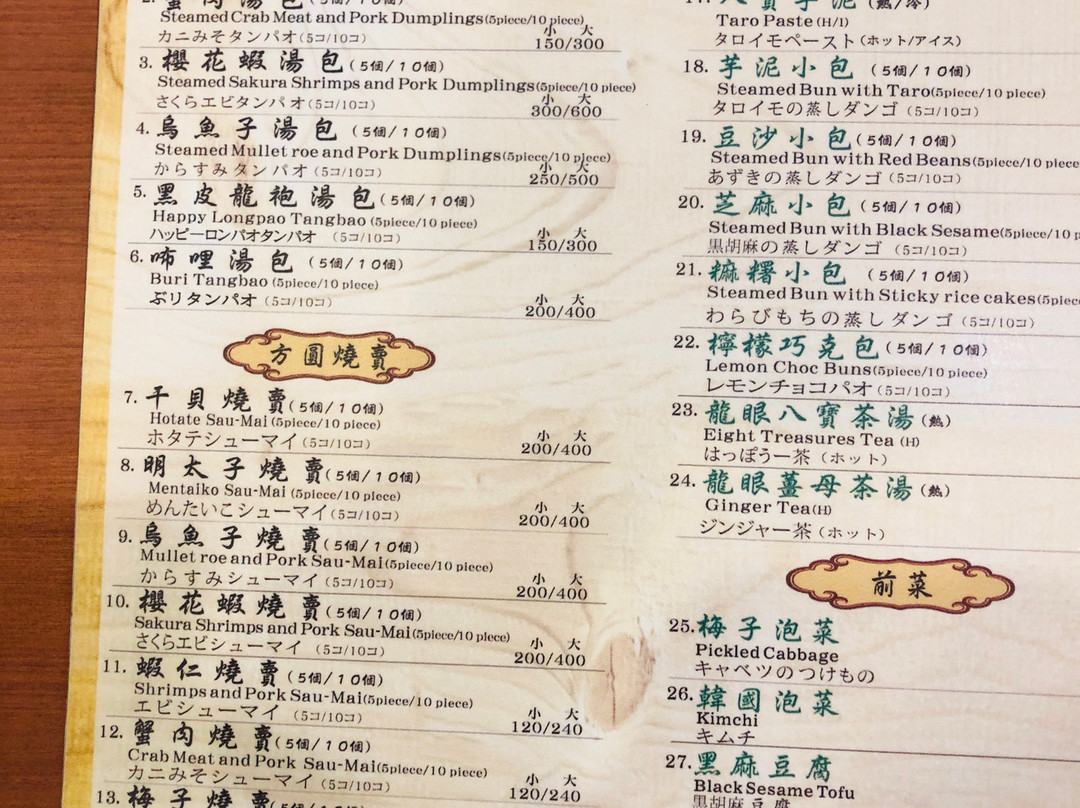 2. 蟹肉湯包(5個/10個)
Steamed Crab Meat and Pork Dumplings(5piece/10 piece)
カニみそタンパオ(5コ/10コ)
小 大
150/300
3. 櫻花蝦湯包(5個/10個)
Steamed Sakura Shrimps and Pork Dumplings(5piece/10 piece)
さくらエビタンパオ(5コ/10コ)
小 大
300/600
4. 烏魚子湯包(5個/10個)
Steamed Mullet roe and Pork Dumplings(5piece/10 piece)
からすみタンパオ(5コ/10コ)
小 大
250/500
5. 黑皮龍袍湯包(5個/10個)
Happy Longpao Tangbao(5piece/10 piece)
ハッピーロンパオタンパオ (5コ/10コ)
小 大
150/300
6. 咘哩湯包 (5個/10個)
Buri Tangbao(5piece/10 piece)
ぶリタンパオ(5コ/10コ)
小 大
200/400
方圓燒賣
7. 干貝燒賣(5個/10個)
Hotate Sau-Mai(5piece/10 piece)
ホタテシューマイ(5コ/10コ)
小 大
200/400
8. 明太子燒賣(5個/10個)
Mentaiko Sau-Mai (5piece/10 piece)
めんたいこシューマイ(5コ/10コ)
小 大
200/400
9. 烏魚子燒賣(5個/10個)
Mullet roe and Pork Sau-Mai(5piece/10 piece)
からすみシューマイ(5コ/10コ)
小 大
200/400
10. 櫻花蝦燒賣(5個/10個)
Sakura Shrimps and Pork Sau-Mai(5piece/10 piece)
さくらエビシューマイ (5コ/10コ)
小 大
200/400
11. 蝦仁燒賣(5個/10個)
Shrimps and Pork Sau-Mai(5piece/10 piece)
エビシューマイ (5コ/10コ)
小 大
120/240
12. 蟹肉燒賣(5個/10個)
Crab Meat and Pork Sau-Mai(5piece/10 piece)
カニみそシューマイ(5コ/10コ)
小 大
120/240
13. 梅子燒賣(5個/10個)
17. 八寶芋泥(熱/冷)
Taro Paste(H/I)
タロイモペースト(ホット/アイス)
18. 芋泥小包 (5個/10個)
Steamed Bun with Taro(5piece/10 piece)
タロイモの蒸しダンゴ(5コ/10コ)
19. 豆沙小包(5個/10個)
Steamed Bun with Red Beans(5piece/10 piece
あずきの蒸しダンゴ(5コ/10コ)
20. 芝麻小包(5個/10個)
Steamed Bun with Black Sesame(5piece/10 p
黒胡麻の蒸しダンゴ(5コ/10コ)
21. 糍粑小包 (5個/10個)
Steamed Bun with Sticky rice cakes(5piece
わらびもちの蒸しダンゴ(5コ/10コ)
22. 檸檬巧克包(5個/10個)
Lemon Choc Buns(5piece/10 piece)
レモンチョコパオ(5コ/10コ)
23. 龍眼八寶茶湯(熱)
Eight Treasures Tea (H)
はっぽうー茶 (ホット)
24. 龍眼薑母茶湯(熱)
Ginger Tea(H)
ジンジャー茶(ホット)
前菜
25. 梅子泡菜
Pickled Cabbage
キャベツのつけもの
26. 韓國泡菜
Kimchi
キムチ
27. 黑麻豆腐
Black Sesame Tofu
黒胡麻豆腐